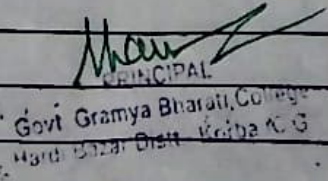 PRINCIPAL
Govt Gramya Bharati, College
Hardi Bazar Distt- Korba C G